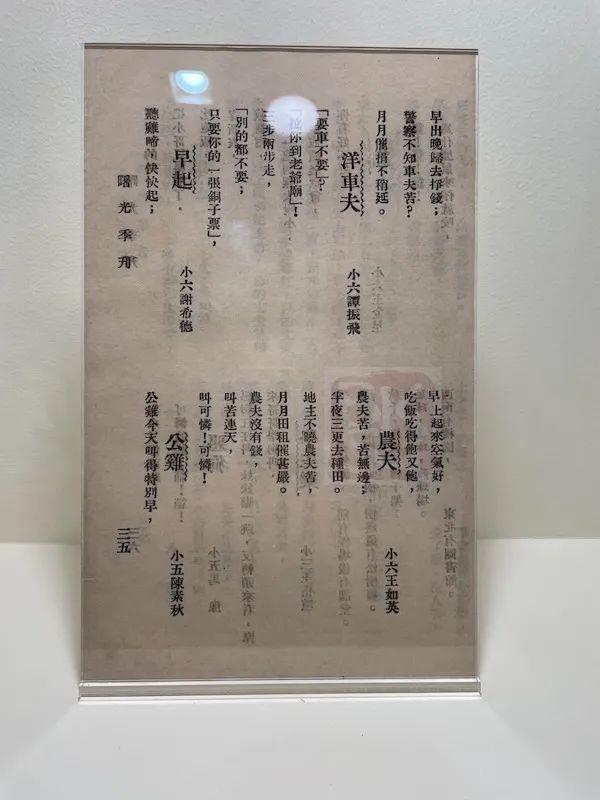 早出晚歸去掙錢;
警察不知車夫苦?
月月催捐不稍延。
洋車夫 小六譚振飛
「要車不要」?
「拉你到老爺廟」!
三步兩步走,
「別的都不要;
只要你的一張銅子票」,
早起 小六謝希德
聽雞啼的快快起;
早上起來空氣好,
吃飯吃得飽又飽,
農夫 小六王如英
農夫苦,苦無邊;
半夜三更去種田。
地主不曉農夫苦,
月月田租催甚嚴。
農夫沒有錢,
叫苦連天,
叫可憐!可憐!
公雞 小五陳素秋
公雞今天叫得特別早,
曙光季刋
三五